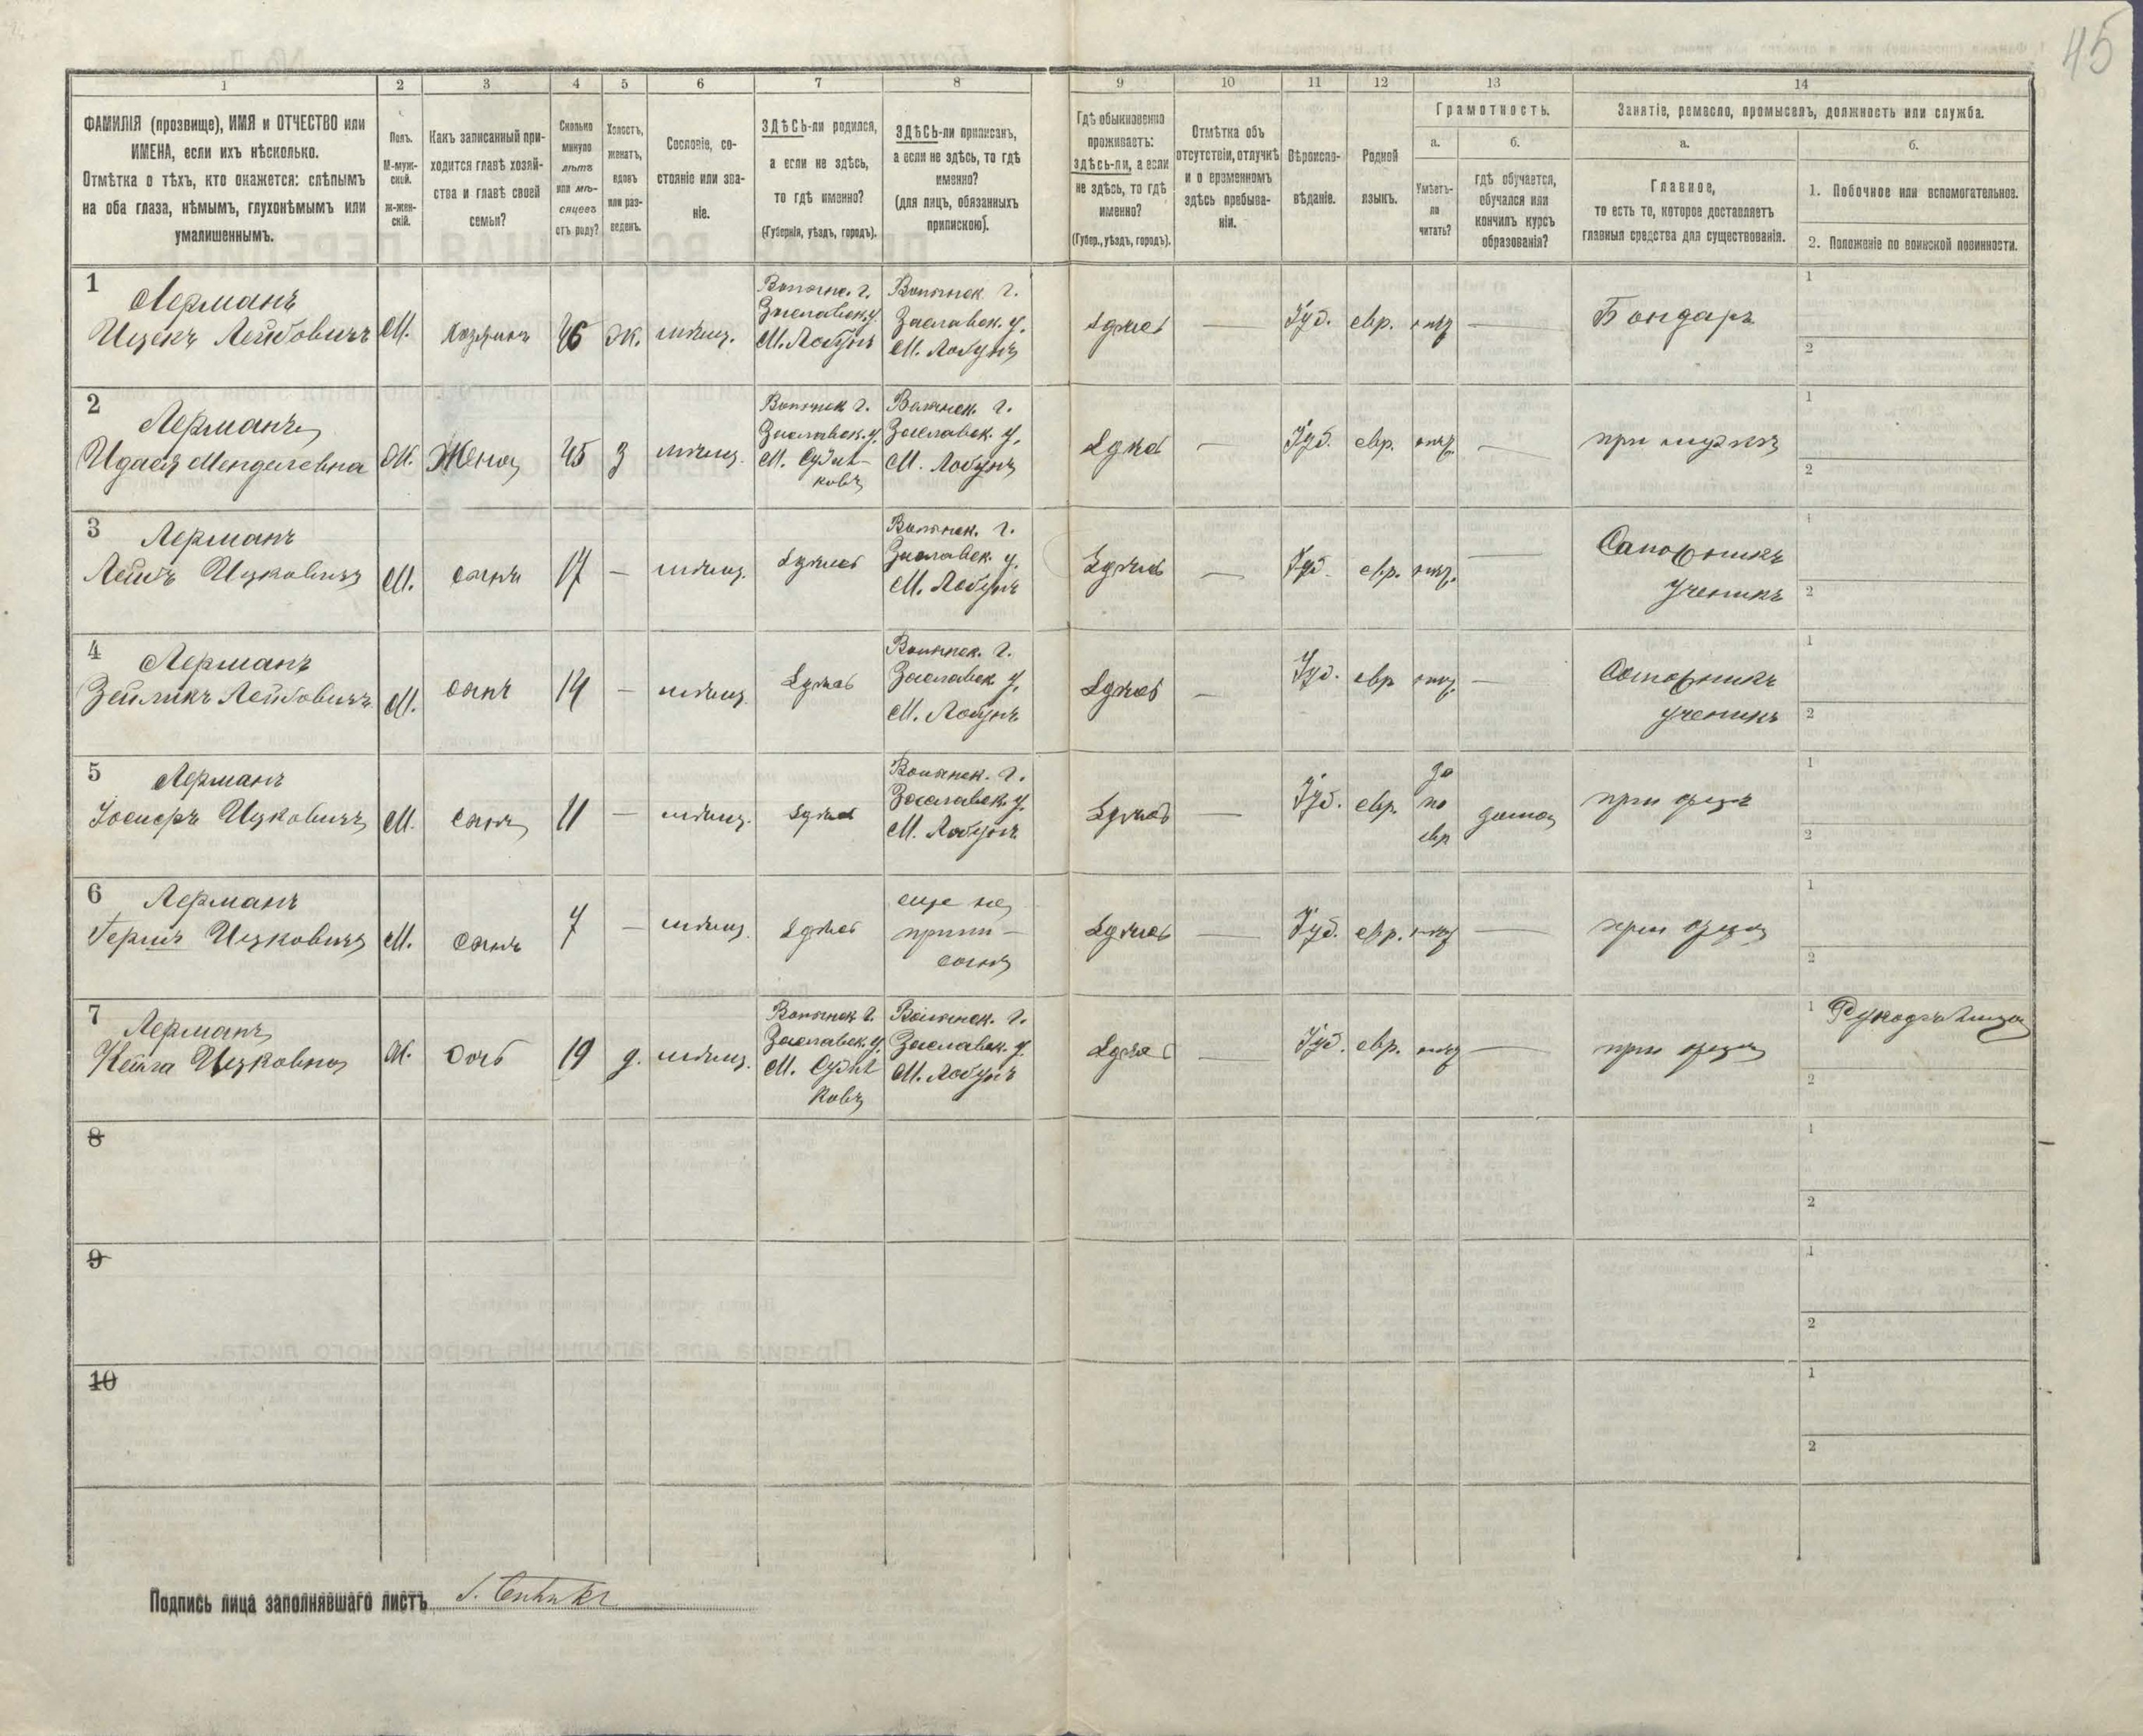 45
1
2
3
4
5
6
7
8
9
10
11
12
13
14
ФАМИЛІЯ (прозвище), ИМЯ и ОТЧЕСТВО или
ИМЕНА, если ихъ нѣсколько.
Отмѣтка о тѣхъ, кто окажется: слѣпымъ
на оба глаза, нѣмымъ, глухонѣмымъ или
умалишеннымъ.
Полъ.
М-муж-
ской.
ж-жен-
скій.
Какъ записанный при-
ходится главѣ хозяй-
ства и главѣ своей
семьи?
Сколько
минуло
лѣтъ
или мѣ-
сяцевъ
отъ роду?
Холостъ,
женатъ,
вдовъ
или раз-
веденъ.
Сословіе, со-
стояніе или зва-
ніе.
ЗДѢСЬ-ли родился,
а если не здѣсь,
то гдѣ именно?
(Губернія, уѣздъ, городъ).
ЗДѢСЬ-ли приписанъ,
а если не здѣсь, то гдѣ
именно?
(для лицъ, обязанныхъ
припискою).
Гдѣ обыкновенно
проживаетъ:
здѣсь-ли, а если
не здѣсь, то гдѣ
именно?
(Губер., уѣздъ, городъ).
Отмѣтка объ
отсутствіи, отлучкѣ
и о временномъ
здѣсь пребыва-
ніи.
Вѣроиспо-
вѣданіе.
Родной
языкъ.
Грамотность.
а.
Умѣетъ-
ли
читать?
б.
гдѣ обучается,
обучался или
кончилъ курсъ
образованія?
Занятіе, ремесло, промыселъ, должность или служба.
а.
Главное,
то есть то, которое доставляетъ
главныя средства для существованія.
б.
1. Побочное или вспомогательное.
2. Положеніе по воинской повинности.
1
Лерманъ
Ицекъ Лейбовичъ
М.
хозяинъ
46
ж.
мѣщ.
Волынс. г.
Заславск. у.
М. Лабунь
Волынск. г.
Заславск. у.
М. Лабунь
здѣсь
—
Іуд.
евр.
нѣтъ
—
Бондарь
1
2
2
Лерманъ
Идася Менделевна
ж.
Жена
45
з
мѣщ.
Волынск г.
Заславск. у.
М. Судил-
ковъ
Волынск. г.
Заславск. у.
М. Лабунь
здѣсь
—
Іуд.
евр.
нѣтъ
—
при мужѣ
1
2
3
Лерманъ
Лейбъ Ицковичъ
М.
сынъ
17
—
мѣщ.
здѣсь
Волынск. г.
Заславск. у.
М. Лабунь
здѣсь
—
Іуд.
евр.
нѣтъ.
—
Сапожникъ
ученикъ
1
2
4
Лерманъ
Зейликъ Лейбовичъ
М.
сынъ
14
—
мѣщ.
здѣсь
Волынск. г.
Заславск у.
М. Лабунь
здѣсь
—
Іуд.
евр
нѣтъ.
—
ученикъ
1
2
5
Лерманъ
Іосифъ Ицковичъ
М.
сынъ
11
—
мѣщ.
здѣсь
Волынск. г.
Заславск. у.
М. Лабунь
здѣсь
—
Іуд.
евр.
да
по
евр
дома
при отцѣ
1
2
6
Лерманъ
Гершъ Ицковичъ
М.
сынъ
7
—
мѣщ.
здѣсь
еще не
припи-
санъ
здѣсь
—
Іуд.
евр.
нѣтъ
—
при отцѣ
1
2
7
Лерманъ
Нейха Ицковна
ж.
дочь
19
д.
мѣщ.
Волынск г.
Заславск. у.
М. Судил
ковъ
Волынск. г.
Заславск. у.
М. Лабунь
здѣсь
—
Іуд.
евр.
нѣтъ
—
при отцѣ
1 Рукодѣльница
2
8
1
2
9
1
2
10
1
2
Подпись лица заполнявшаго листъ